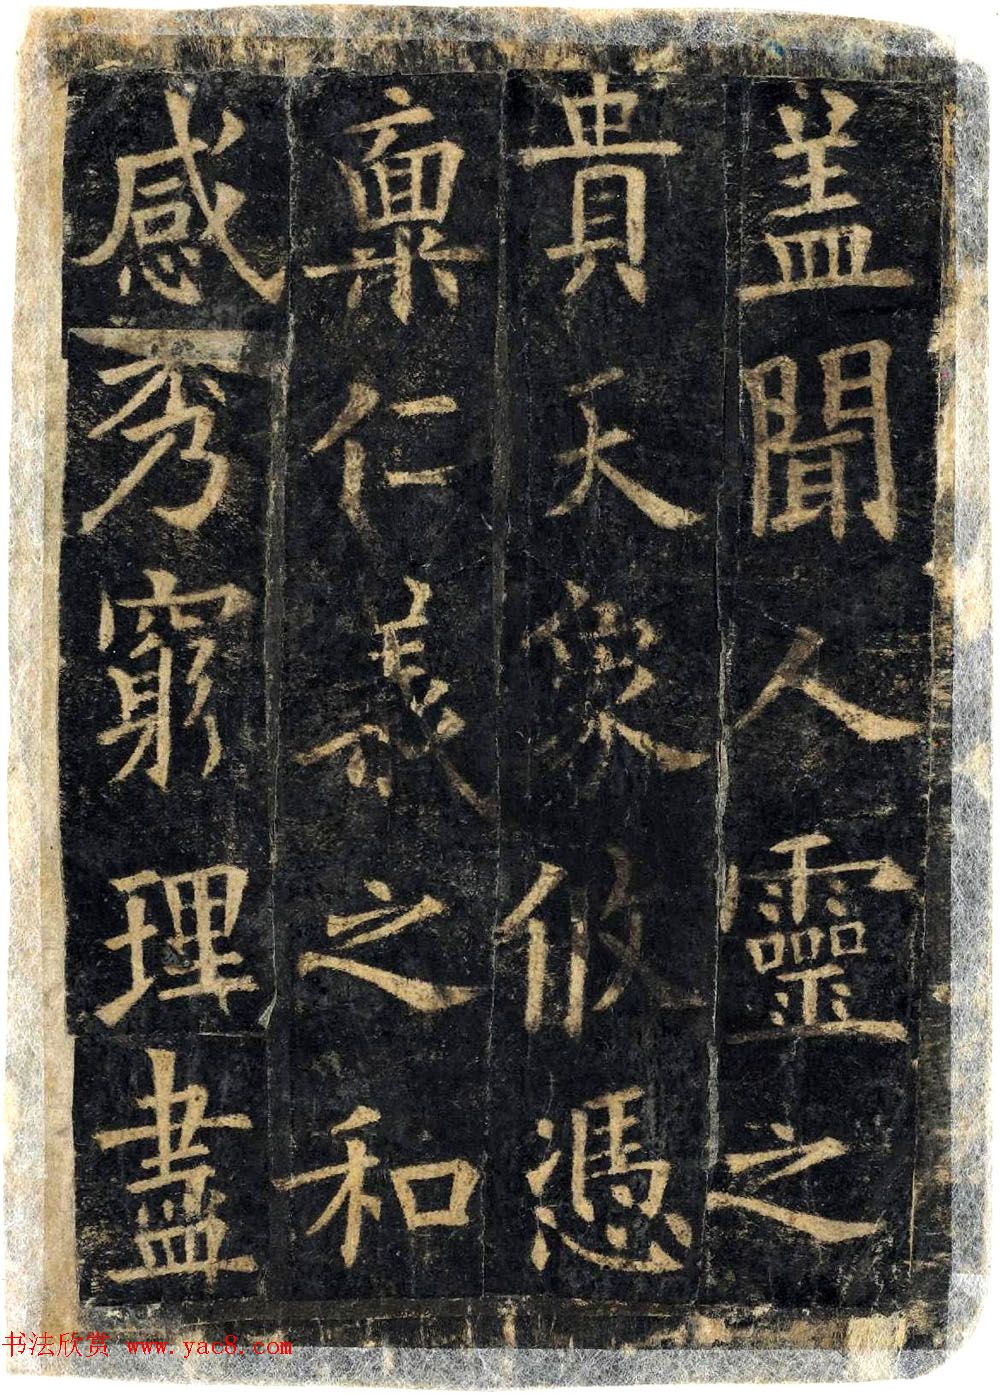 盖聞人靈之
貴天象攸憑
稟仁義之和
感秀窮理盡
书法欣赏 www.yac8.com